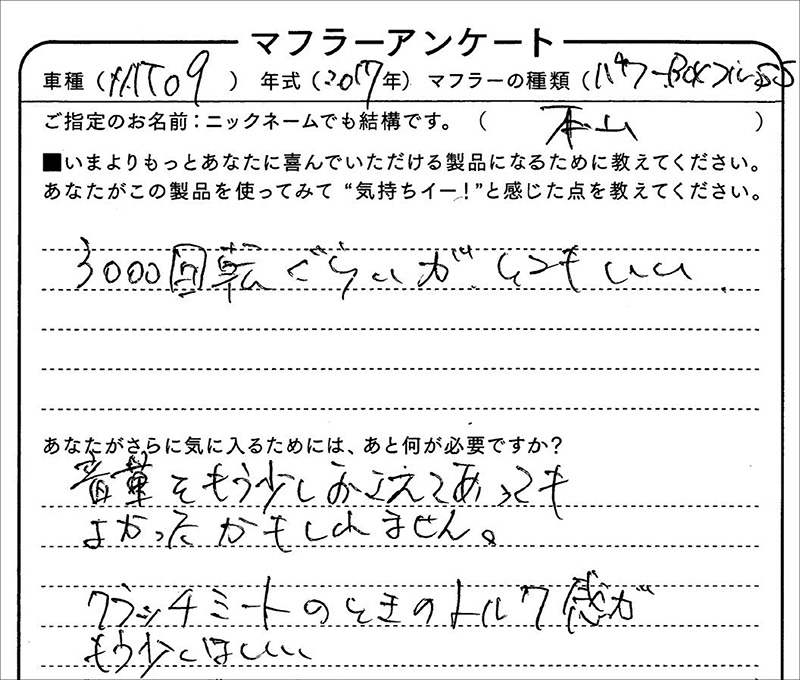 マフラーアンケート
車種（MT09） 年式（2017年） マフラーの種類（パワーBOXフルSS
ご指定のお名前：ニックネームでも結構です。（ 本山 ）
■いまよりもっとあなたに喜んでいただける製品になるために教えてください。
あなたがこの製品を使ってみて“気持ちイー！”と感じた点を教えてください。
3000回転ぐらいがとてもいい
あなたがさらに気に入るためには、あと何が必要ですか？
音量をもう少しおさえてあっても
よかったかもしれません。
クラッチミートのときのトルク感が
もう少しほしい